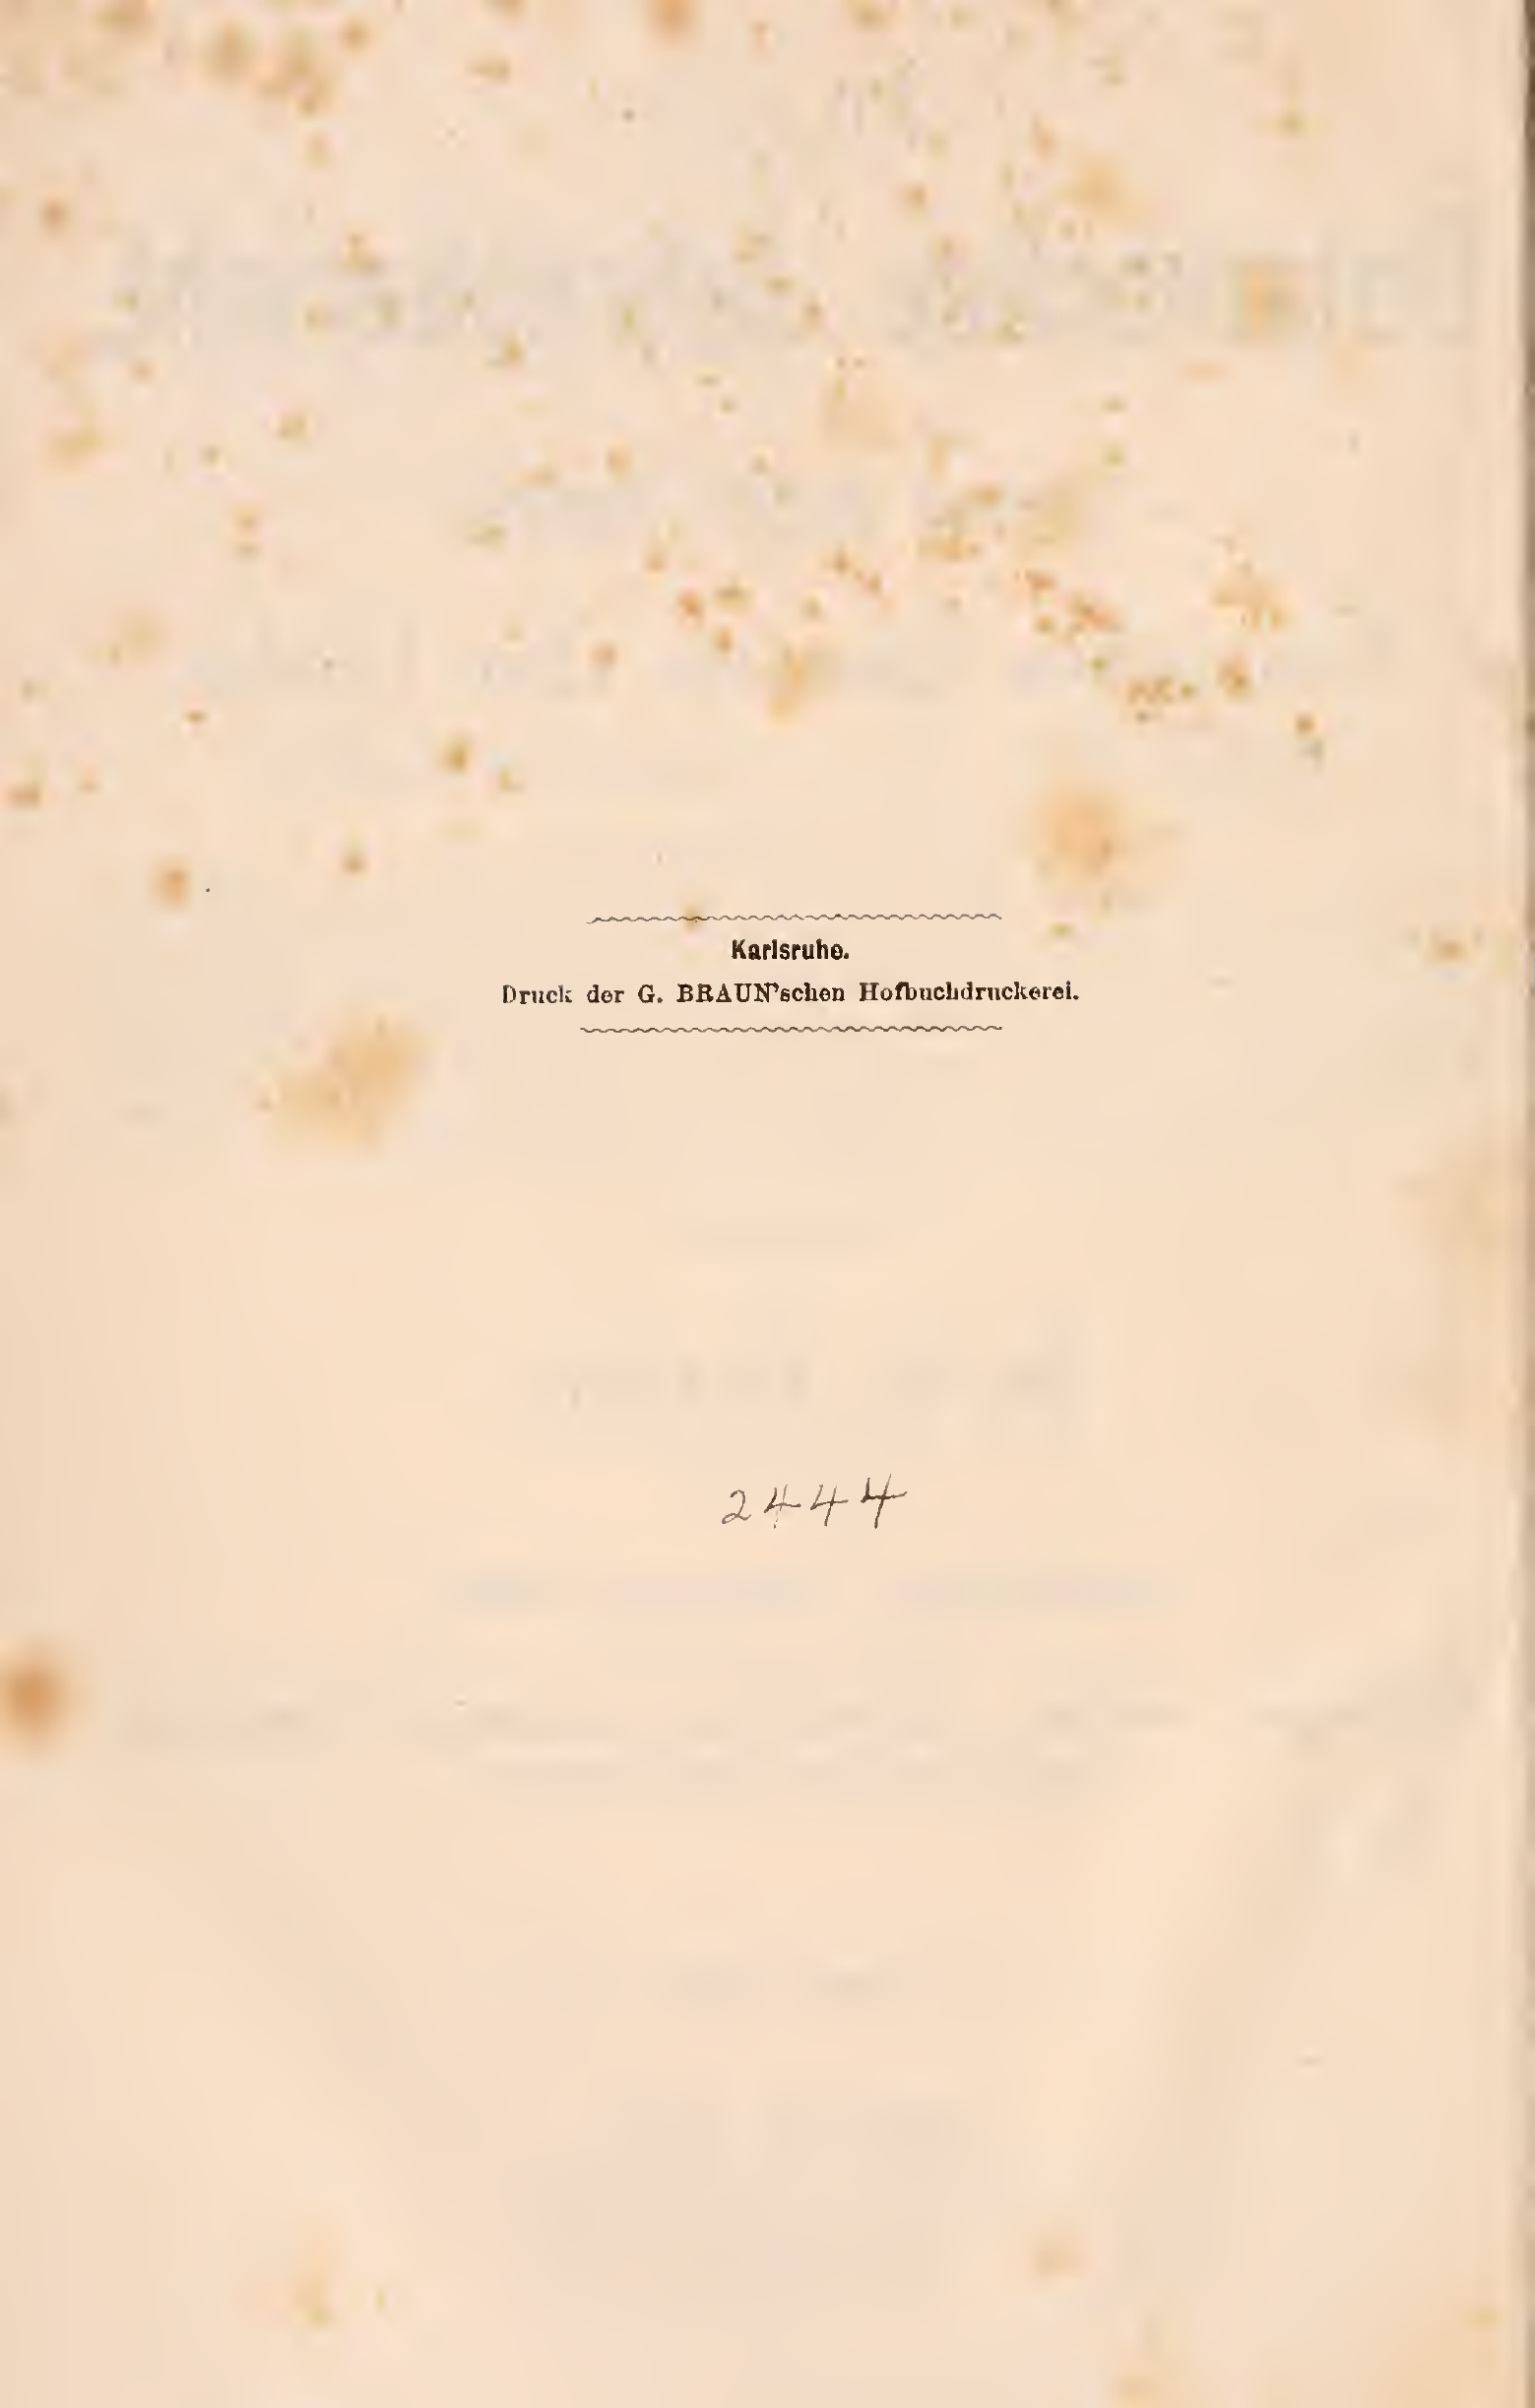 Karlsruhe.
Druck der G. BRAUN'schen Hofbuchdruckerei.
2444